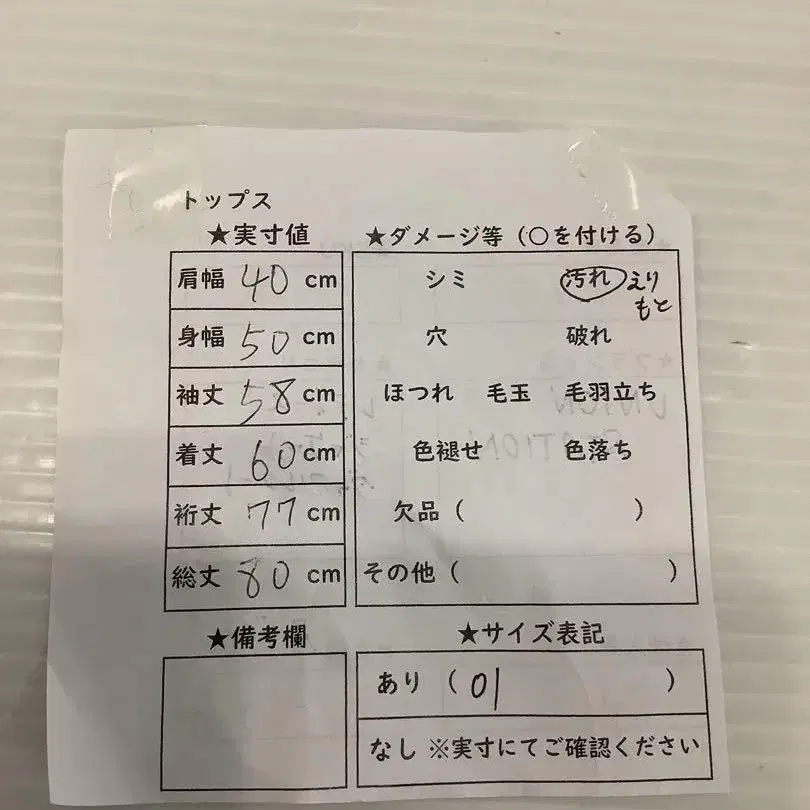 トップス
★実寸値
肩幅 40 cm
身幅 50 cm
袖丈 58 cm
着丈 60 cm
裄丈 77 cm
総丈 80 cm
★ダメージ等（○を付ける）
シミ 汚れ えり
もと
穴 破れ
ほつれ 毛玉 毛羽立ち
色褪せ 色落ち
欠品（ ）
その他（ ）
★備考欄
★サイズ表記
あり（ 01 ）
なし ※実寸にてご確認ください